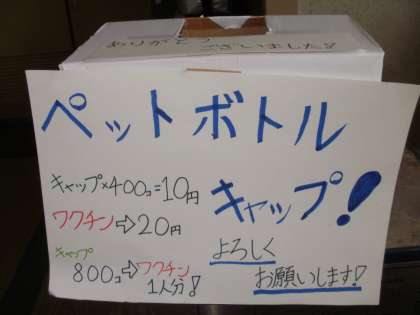 ありがとう
ございました!
ペットボトル
キャップ!
キャップ×400コ=10円
ワクチン⇨20円
キャップ
800コ⇨ワクチン
1人分!
よろしく
お願いします!